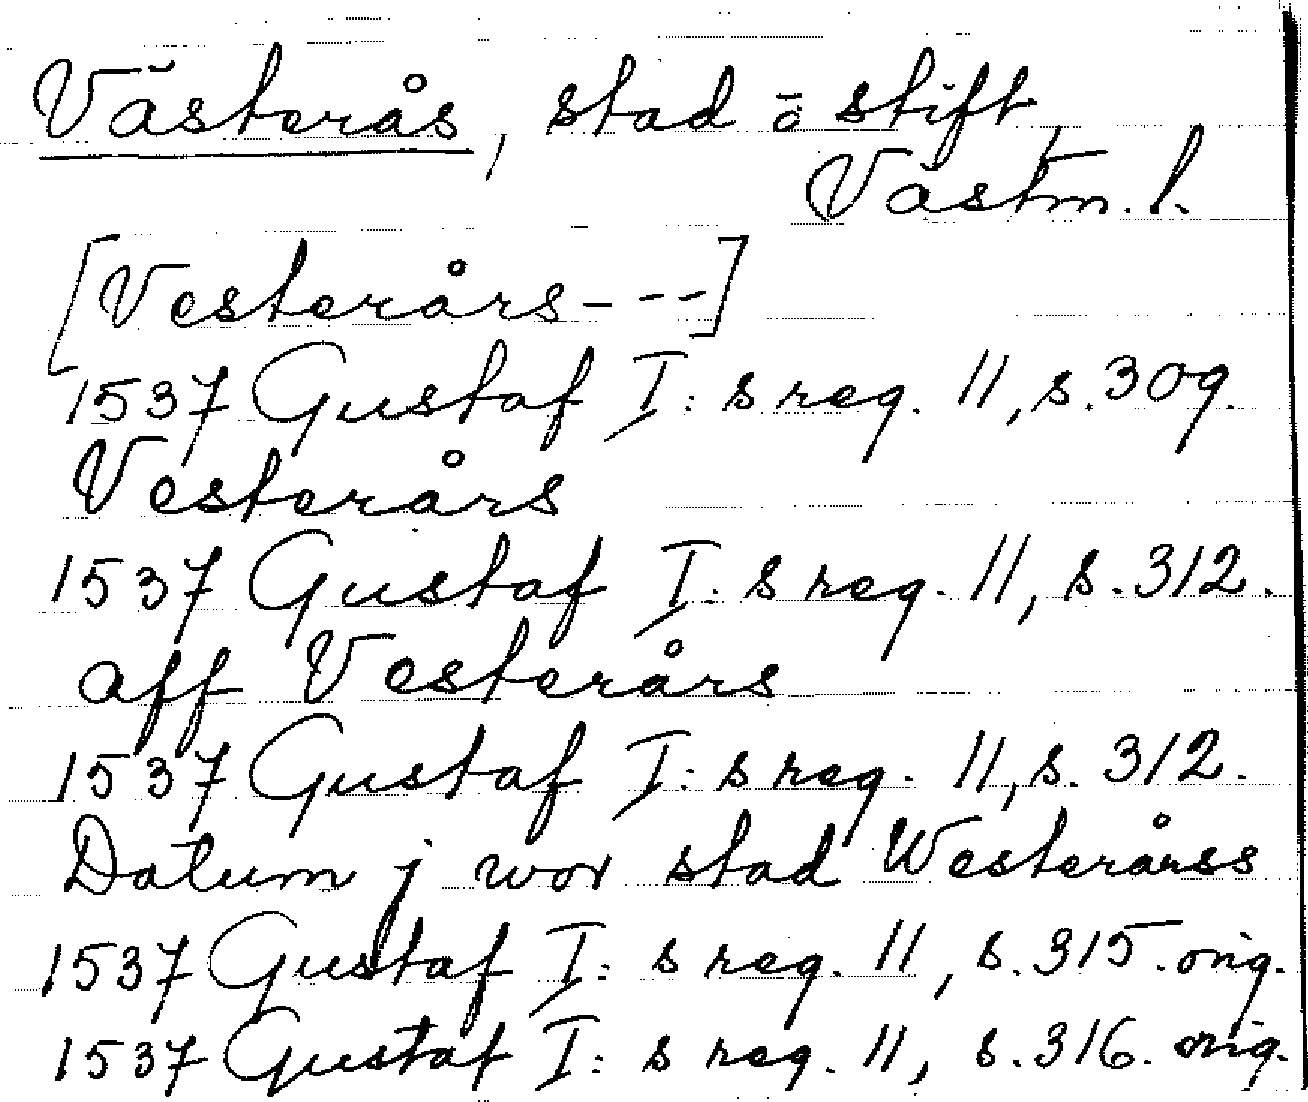 Västerås, stad ō stift,
Västm. l.
[Vesterårs- --]
1537 Gustaf I: s reg. 11, s. 309.
Vesterårs
1537 Gustaf I: s reg. 11, s. 312.
aff Vesterårs
1537 Gustaf I: s reg. 11, s. 312.
Datum j wor stad Westerårss
1537 Gustaf I: s reg. 11, s. 315. orig.
1537 Gustaf I: s reg. 11, s. 316. orig.